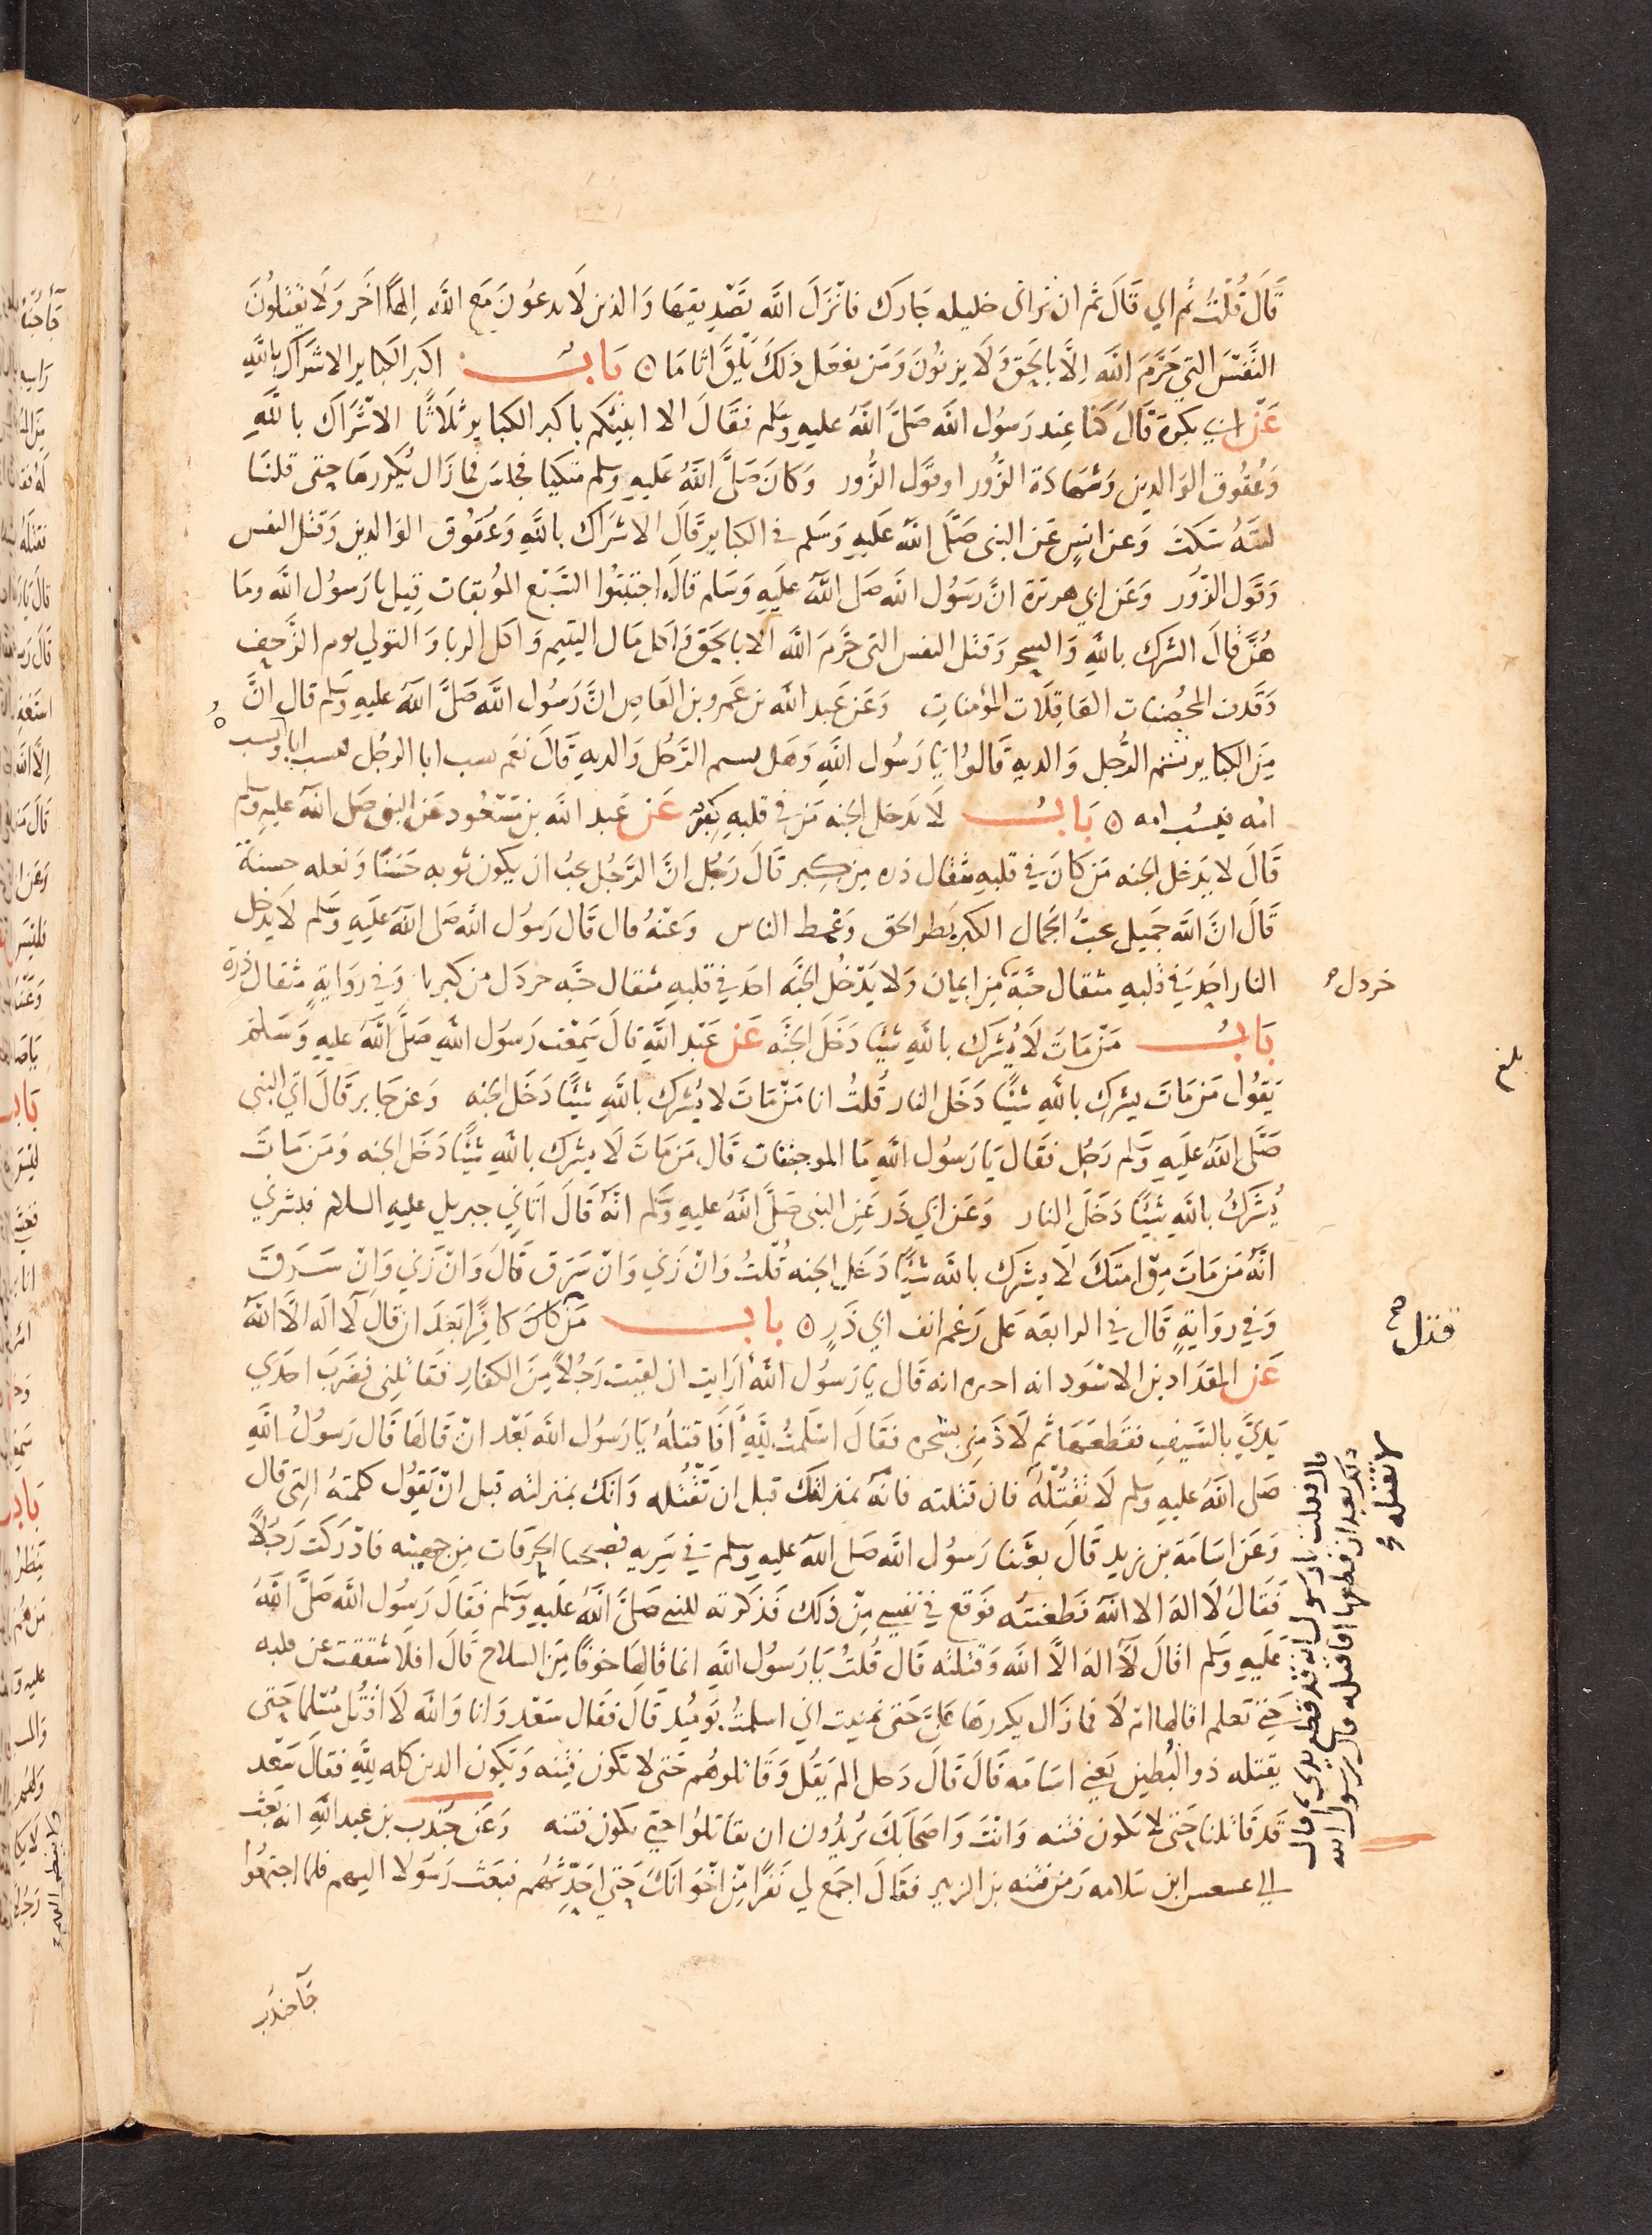 قَالَ قُلْتُ ثم اي قَالَ ثم ان تزاني حليله جَارك فانْزَلَ الله تَصْدِيقها وَالذين لَا يدعُونَ مَع اللَّه اِلهًا اخَر وَلَا يَقْتلُونَ
النَّفْسَ التي حَرَّمَ اللَّه اِلَّا بالحَقّ وَلَا يزنُونَ وَمَن يفعَل ذلكَ يَلْقَ اثامًا ں بَابُ اكبر الكبَاير الاشرَاك باللَّهِ
عَن ابي بكرة قَالَ كنّا عِند رَسُول اللَّه صَلَّى اللَّهُ عليهِ وسَلم فقَالَ الا انبئكم باكبر الكبايرِ ثلَاثًا الاشْرَاك باللَّهِ
وَعُقُوق الوَالدين وَشهَادَة الزُّور او قَوْل الزُّور وَكانَ صَلَّى اللَّهُ عَليهِ وسلم متكيا فجَلسَ فمَا زَال يُكررها حتى قلنَا
ليتَهُ سَكتَ وَعن انسٍ عَن النبي صَلَّى اللَّهُ عَليهِ وَسَلم في الكبايرِ قَالَ الاشرَاك باللَّهِ وَعُقوُق الوَالدين وَقتل النفس
وَقَوْل الزّور وَعَن ابي هريرَة انَّ رَسُول الله صَلى اللَّهُ عَليهِ وَسَلم قالَ اجتنبُوا السَّبع المُوبقات قِيل يا رَسُول اللَّه ومَا
هُنَّ قالَ الشرك باللَّهِ وَالسِحر وَقتل النفس التي حَرَّمَ اللَّه الا بالحَقّ وَاكل مَال اليتيم وَاكل الربا وَالتولي يوم الزَّحِفِ
وَقَذف المحُصَنات الغَافِلَات المؤمنَاتِ وَعَن عَبد الله بن عَمرو بن العَاصِ انَّ رَسُول اللَّه صَلَّى اللَّهُ عليهِ وسَلم قال انَّ
مِنَ الكبايرِ شتم الرَّجل وَالديهِ قَالوُا يَا رَسُول اللَّهِ وَهَل يشتم الرَّجُل وَالديهِ قَالَ نعَم يسب ابا الرجُل فيسب اباه ويسب
امُه فيسُب امه ں بَابُ لَا يَدخل الجنه مَن في قلبهِ كبر عَن عَبد الله بن مَسْعُود عَن النبي صَلى اللَّهُ عليهِ وسلم
قَالَ لا يَدخل الجنه مَن كانَ في قلبهِ مثقَال ذره مِن كِبر قَالَ رَجُل انَّ الرَّجُل يحبُ ان يكون ثوبه حَسَنًا وَنعله حسنة
قَالَ انَّ اللَّهَ جَميل يحبُّ الجَمال الكبر بَطر الحَق وَغمط الناس وَعْنهُ قال قَال رَسُول اللَّه صَلى اللَّه عَليهِ وَسَلم لَا يَدخل
النار احَد في قلبهِ مثقال حَبّة مِن ايمان وَلا يَدْخُل الجنَّه احَد في قلبهِ مثقال حَبّه خردَل من كبريا وَفي روَايةٍ مثقال ذرة
بَابُ مَنْ مَاتَ لَا يُشرِك باللَّهِ شَيًا دَخَل الجنَّه عَن عَبْد اللَّهِ قالَ سَمِعْتُ رَسُول اللَّهِ صَلَّى اللَّهُ عليهِ وَسَلم
يَقوُل مَن مَاتَ يشرك باللَّهِ شيًا دَخَل النار قُلتُ انا مَنْ مَاتَ لا يُشرك باللَّهِ شيًّا دَخَل الجنه وَعن جَابر قَالَ اتى النبي
صَلَّى اللَّهُ عَليهِ وسَلم رَجُل فقَال يَا رَسُول اللَّهِ مَا الموجبتان قَال مَن مَاتَ لَا يشرك باللَّهِ شيًا دَخَل الجنه وَمَن مَاتَ
يُشرَكُ باللَّهِ شيًا دَخَلَ النار وَعَن ابي ذَر عَنِ النبي صَلَّى اللَّهُ عليهِ وسَلم انَّهُ قَالَ اتَانِي جبريل عليهِ السلام فبشرني
انَّه مَن مَاتَ مِن امتكَ لَا يشرك باللَّه شيًا دَخَل الجنه قُلتُ وَانْ زَني وَانْ سَرق قَالَ وَانْ زَني وَانْ سَرَقَ
وَفي روَايةٍ قَالَ في الرابعَه عَلى رَغم انف ابي ذَرٍ ں بابُ مَن قتل كَافِرًا بَعدَ ان قَالَ لَا الَه الَّا اللَّه
عَن المقدَاد بن الاسْوَد انه اخبره انه قَال يَا رَسُول اللَّه أرَايت ان لقيت رَجُلًا مِنَ الكفارِ فقَاتَلني فضَرَبَ احدَي
يَدَيَّ بالسَّيفِ فقطعَهَا ثم لَاذَ مني بشجره فقَالَ اسْلَمتُ للَّهِ أَفَاقتلُهُ يَا رَسُول اللَّه بَعْد انْ قَالهَا قَال رَسُولُ اللَّهِ
صَلى اللَّهُ عليهِ وسلم لَا تَقْتُلْهُ فان قتلته فانهُ بمنزلتك قبل ان تقْتُله وَانكَ بمنزلته قبل انْ يَقوُل كلمتهُ التي قال
وَعَن اسَامَة بن زيد قَالَ بعَثنا رَسوُل اللَّه صَلى اللَّه عليهِ وسلم في سَريه فصبحنا الحرقات من جهينه فادْرَكت رَجُلًا
فَقَالُ لَا اله الا اللَّه فَطعَنتُه فوَقع في نفسِي مِن ذلك فذكرته للنبي صَلَّى اللَّهُ عَليهِ وسَلم فقَالَ رَسُول اللَّه صَلَّى اللَّهُ
عَليهِ وسَلم اقَالَ لَا اله الَّا اللَّه وَقَتلته قَال قُلتُ يَا رَسُول اللَّه انما قَالهَا خوَفًا مِنَ السلَاح قَالَ افلا شققت عن قلبه
حَتي تعلم اقالها ام لَا فما زَال يكررها عَليَّ حَتي تمنيت اني اسلمتُ يَومَيُد قَالَ فقَال سَعْد وَانا وَاللَّه لَا اقتُل مُسلمًا حَتي
يقتله ذو البُطين يَعني اسَامه قَال قَالَ رَجل الم يَقل وَقَاتلوهُم حَتي لا تكون فِتنه وَيَكوُن الدين كله للَّهِ فقَالَ سَعْد
قَد قَاتلنا حَتي لا تكون فتنه وَانتَ وَاصحَابَكَ تُريدُون ان تقَاتلُوا حتي تكون فتنه وَعَن جُندب بن عبد اللَّهِ انه بَعث
الي عسعس ابن سَلامه زمَن فتنه بن الزبير فقَالَ اجمَع لي نَفرًا مِن اخوَانكَ حَتي احَدّثهُم فبَعَث رَسَولا اليهم فلما اجتمعُوا
جَا جندَب
خردل
بلغ
قتل صح
قال فقلت يا رسول الله انه قد قطع يدي ثم قال
ذلك بعد ان قطعها افاقتله قال رسول الله
لا تقتله